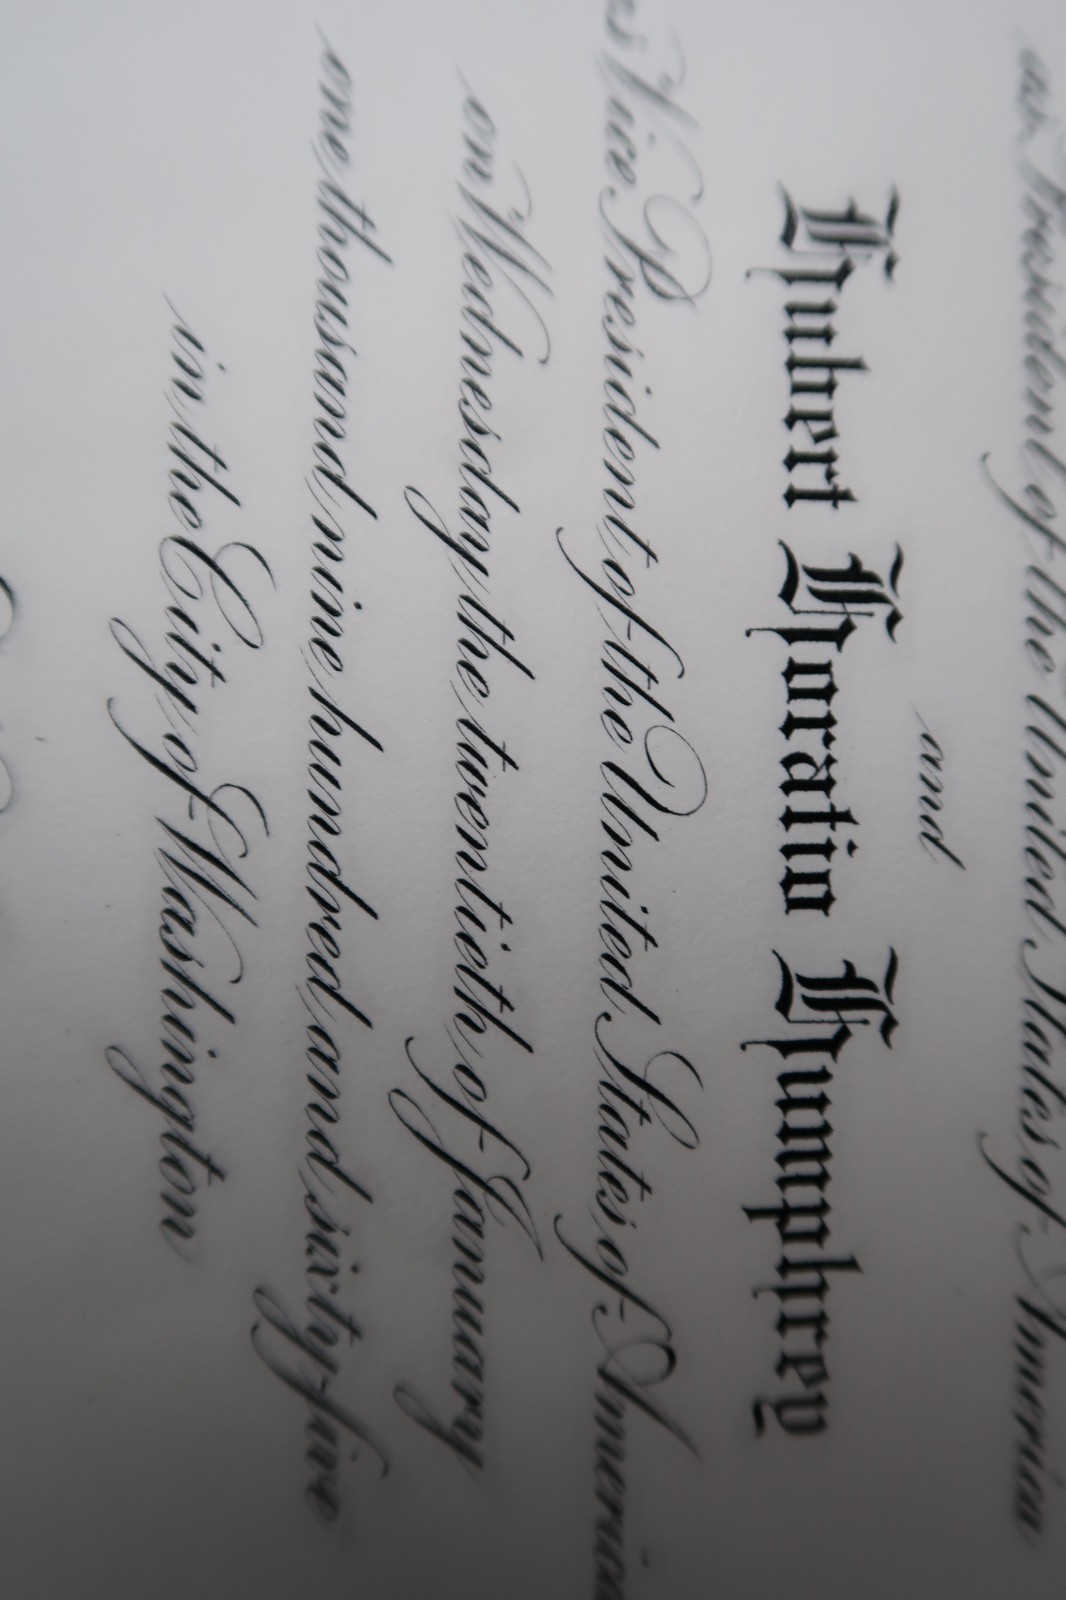 as President of the United States of America
and
Hubert Horatio Humphrey
as Vice President of the United States of America
on Wednesday the twentieth of January
one thousand nine hundred and sixty-five
in the City of Washington